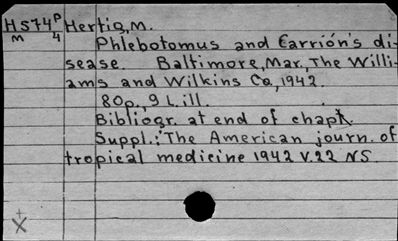 HS74P Hertig, M.
M 4
Phlebotomus and Carrión's di-
sease. Baltimore, Mar., The Willi-
ams and Wilkins Co, 1942.
80p., 9 L. ill.
Bibliogr. at end of chapt.
Suppl.: The American journ. of
tropical medicine 1942 V.22 NS